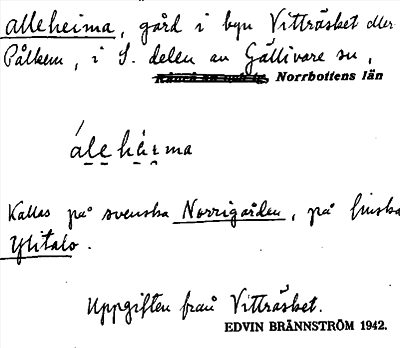 alleheima, gård i byn Vitträsket eller
Pålkem, i S. delen av Gällivare sn,
Norrbottens län
áleheima
Kallas på svenska Norrigården, på finska
Ylitalo.
Uppgiften från Vitträsket.
EDVIN BRÄNNSTRÖM 1942.